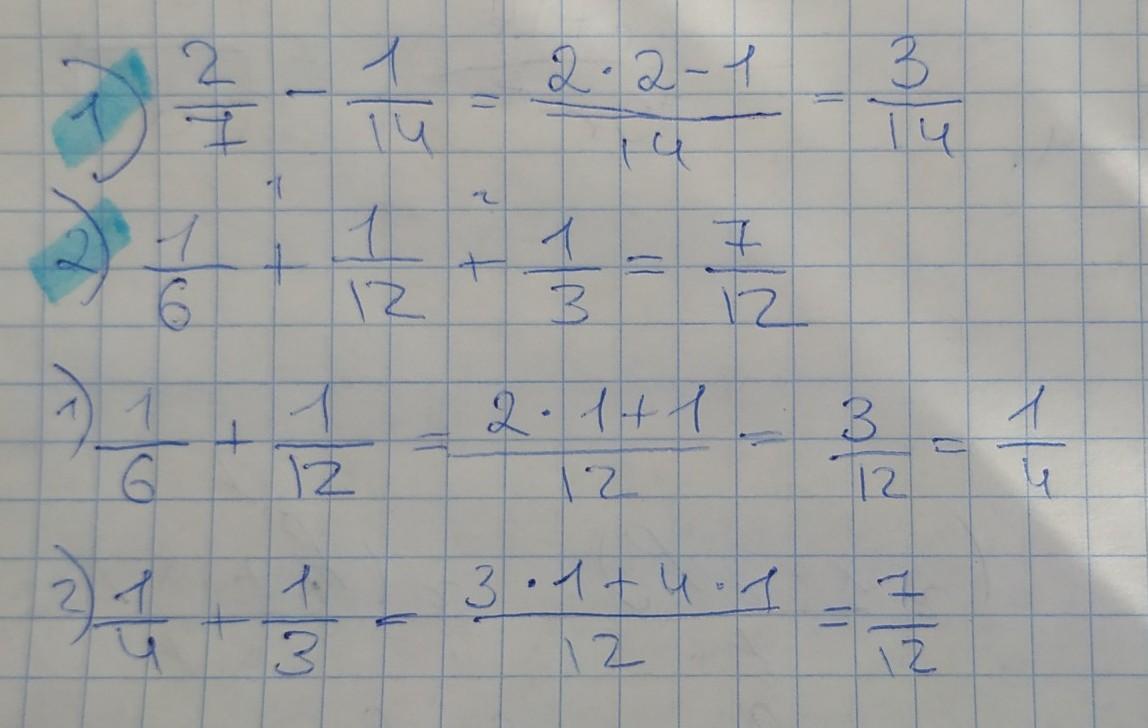 1) 2/7 - 1/14 = (2·2-1)/14 = 3/14
1 2
2) 1/6 + 1/12 + 1/3 = 7/12
1) 1/6 + 1/12 = (2·1+1)/12 = 3/12 = 1/4
2) 1/4 + 1/3 = (3·1+4·1)/12 = 7/12